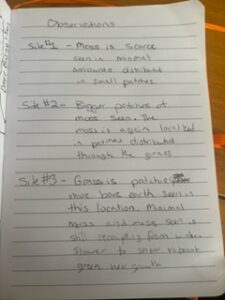 Observations
Site #1 - Moss is scarce
seen in minimal
amounts distributed
in small patches.
Site #2 - Bigger patches of
moss seen. The
moss is again localized
in patches distributed
through the grass
Site #3 - Grass is patchy
more bare earth seen in
this location. Minimal
moss and grass seen is
still recouping from winter
slower to show vibrant
green new growth